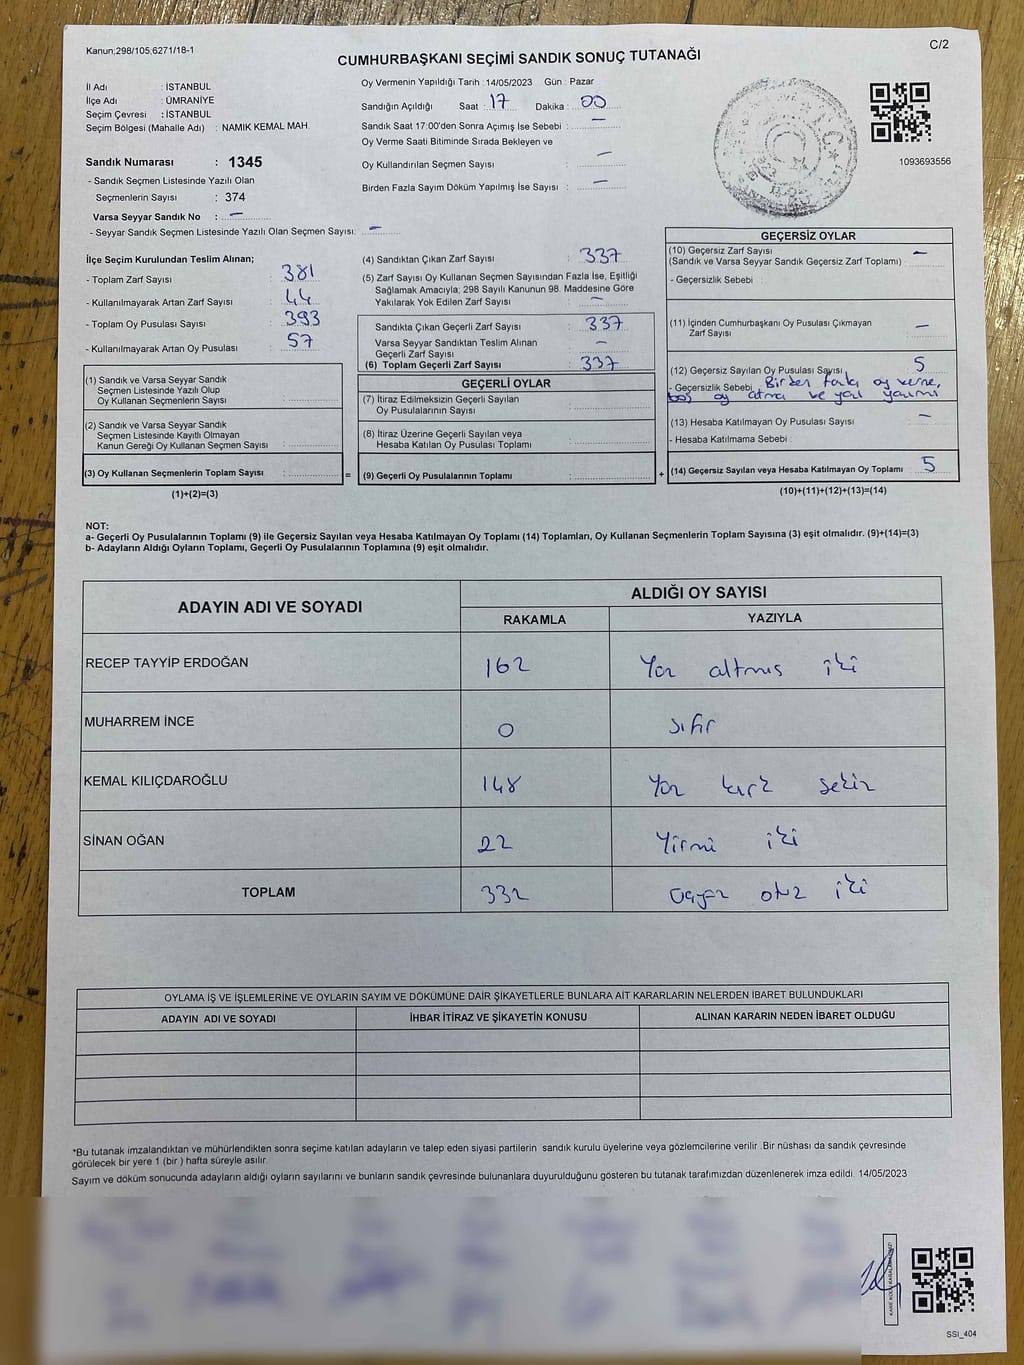 Kanun;298/105;6271/18-1
C/2
CUMHURBAŞKANI SEÇİMİ SANDIK SONUÇ TUTANAĞI
İl Adı : İSTANBUL
İlçe Adı : ÜMRANİYE
Seçim Çevresi : İSTANBUL
Seçim Bölgesi (Mahalle Adı) : NAMIK KEMAL MAH.
Sandık Numarası : 1345
- Sandık Seçmen Listesinde Yazılı Olan
Seçmenlerin Sayısı : 374
Varsa Seyyar Sandık No : —
- Seyyar Sandık Seçmen Listesinde Yazılı Olan Seçmen Sayısı: —
Oy Vermenin Yapıldığı Tarih : 14/05/2023 Gün : Pazar
Sandığın Açıldığı Saat : 17 Dakika : 00
Sandık Saat 17:00'den Sonra Açımış İse Sebebi : —
Oy Verme Saati Bitiminde Sırada Bekleyen ve
Oy Kullandırılan Seçmen Sayısı : —
Birden Fazla Sayım Döküm Yapılmış İse Sayısı : —
T.C.
1093693556
İlçe Seçim Kurulundan Teslim Alınan;
- Toplam Zarf Sayısı : 381
- Kullanılmayarak Artan Zarf Sayısı : 44
- Toplam Oy Pusulası Sayısı : 393
- Kullanılmayarak Artan Oy Pusulası : 57
(1) Sandık ve Varsa Seyyar Sandık
Seçmen Listesinde Yazılı Olup
Oy Kullanan Seçmenlerin Sayısı :
(2) Sandık ve Varsa Seyyar Sandık
Seçmen Listesinde Kayıtlı Olmayan
Kanun Gereği Oy Kullanan Seçmen Sayısı :
(3) Oy Kullanan Seçmenlerin Toplam Sayısı :
(1)+(2)=(3)
(4) Sandıktan Çıkan Zarf Sayısı : 337
(5) Zarf Sayısı Oy Kullanan Seçmen Sayısından Fazla İse, Eşitliği
Sağlamak Amacıyla; 298 Sayılı Kanunun 98. Maddesine Göre
Yakılarak Yok Edilen Zarf Sayısı : —
Sandıkta Çıkan Geçerli Zarf Sayısı : 337
Varsa Seyyar Sandıktan Teslim Alınan
Geçerli Zarf Sayısı : —
(6) Toplam Geçerli Zarf Sayısı : 337
GEÇERLİ OYLAR
(7) İtiraz Edilmeksizin Geçerli Sayılan
Oy Pusulalarının Sayısı :
(8) İtiraz Üzerine Geçerli Sayılan veya
Hesaba Katılan Oy Pusulası Toplamı :
= (9) Geçerli Oy Pusulalarının Toplamı :
GEÇERSİZ OYLAR
(10) Geçersiz Zarf Sayısı —
(Sandık ve Varsa Seyyar Sandık Geçersiz Zarf Toplamı) :
- Geçersizlik Sebebi :
(11) İçinden Cumhurbaşkanı Oy Pusulası Çıkmayan
Zarf Sayısı : —
(12) Geçersiz Sayılan Oy Pusulası Sayısı : 5
- Geçersizlik Sebebi : Birden fazla oy verme,
boş oy atma ve yazı yazımı
(13) Hesaba Katılmayan Oy Sayısı : —
- Hesaba Katılmama Sebebi :
+ (14) Geçersiz Sayılan veya Hesaba Katılmayan Oy Toplamı : 5
(10)+(11)+(12)+(13)=(14)
NOT:
a- Geçerli Oy Pusulalarının Toplamı (9) ile Geçersiz Sayılan veya Hesaba Katılmayan Oy Toplamı (14) Toplamları, Oy Kullanan Seçmenlerin Toplam Sayısına (3) eşit olmalıdır. (9)+(14)=(3)
b- Adayların Aldığı Oyların Toplamı, Geçerli Oy Pusulalarının Toplamına (9) eşit olmalıdır.
ADAYIN ADI VE SOYADI
ALDIĞI OY SAYISI
RAKAMLA YAZIYLA
RECEP TAYYİP ERDOĞAN 162 Yüz altmış iki
MUHARREM İNCE 0 sıfır
KEMAL KILIÇDAROĞLU 148 Yüz kırk sekiz
SİNAN OĞAN 22 Yirmi iki
TOPLAM 332 Üçyüz otuz iki
OYLAMA İŞ VE İŞLEMLERİNE VE OYLARIN SAYIM VE DÖKÜMÜNE DAİR ŞİKAYETLERLE BUNLARA AİT KARARLARIN NELERDEN İBARET BULUNDUKLARI
ADAYIN ADI VE SOYADI İHBAR İTİRAZ VE ŞİKAYETİN KONUSU ALINAN KARARIN NEDEN İBARET OLDUĞU
*Bu tutanak imzalandıktan ve mühürlendikten sonra seçime katılan adayların ve talep eden siyasi partilerin sandık kurulu üyelerine veya gözlemcilerine verilir .Bir nüshası da sandık çevresinde
görülecek bir yere 1 (bir ) hafta süreyle asılır.
Sayım ve döküm sonucunda adayların aldığı oyların sayılarını ve bunların sandık çevresinde bulunanlara duyurulduğunu gösteren bu tutanak tarafımızdan düzenlenerek imza edildi. 14/05/2023
SSI_404